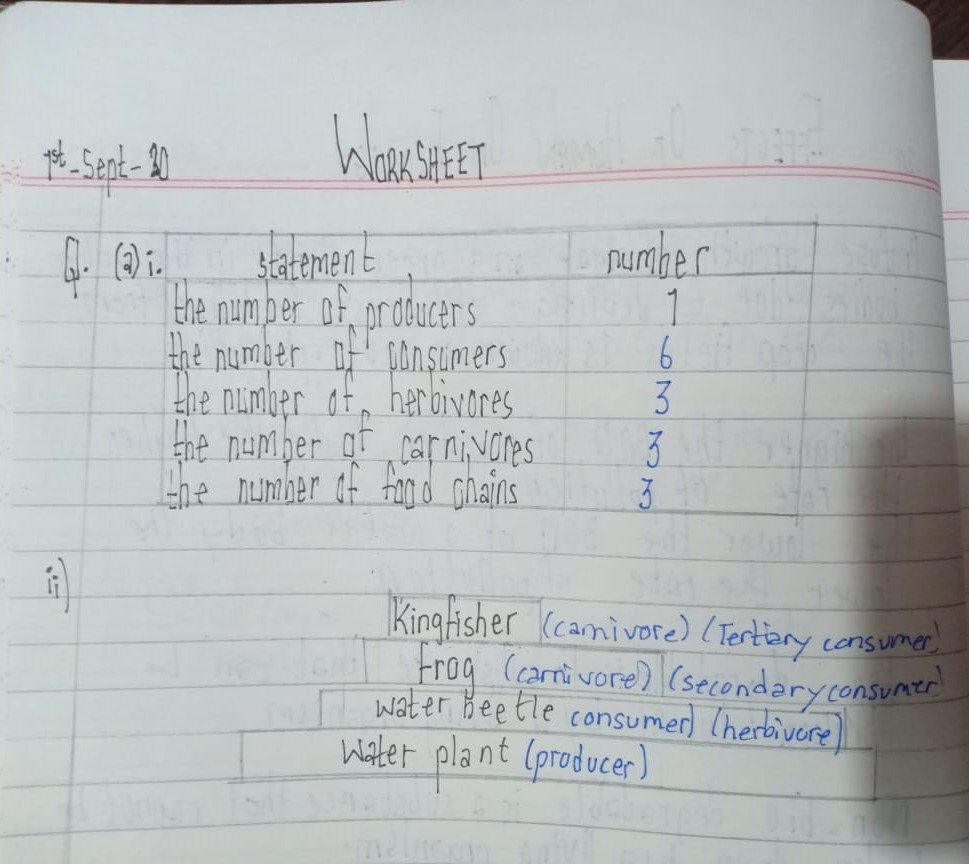 1st-Sept-20 WORKSHEET
Q. (a) i. statement number
the number of producers 1
the number of consumers 6
the number of herbivores 3
the number of carnivores 3
the number of food chains 3
ii)
Kingfisher (carnivore) (Tertiary consumer)
frog (carnivore) (secondary consumer)
water beetle consumer) (herbivore)
Water plant (producer)